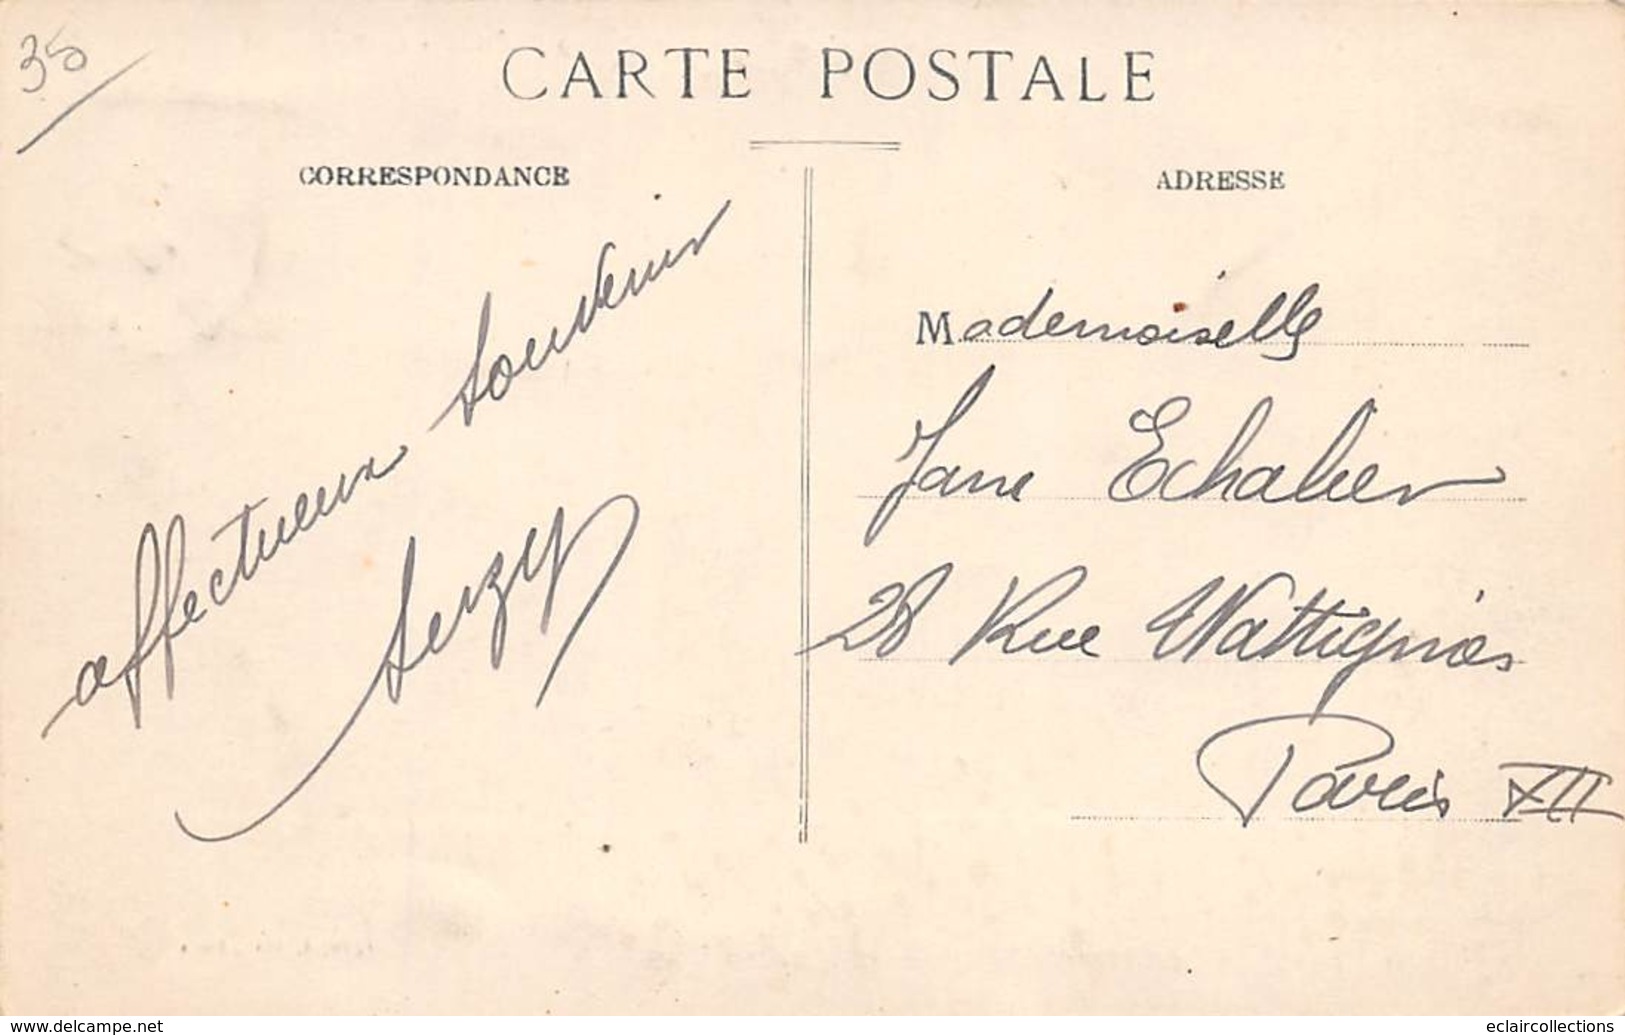 35
CARTE POSTALE
CORRESPONDANCE
ADRESSE
affectueux souvenir
Suzy
Mademoiselle
Jane Echalier
28 Rue Wattignies
Paris XII
www.delcampe.net
eclaircollections